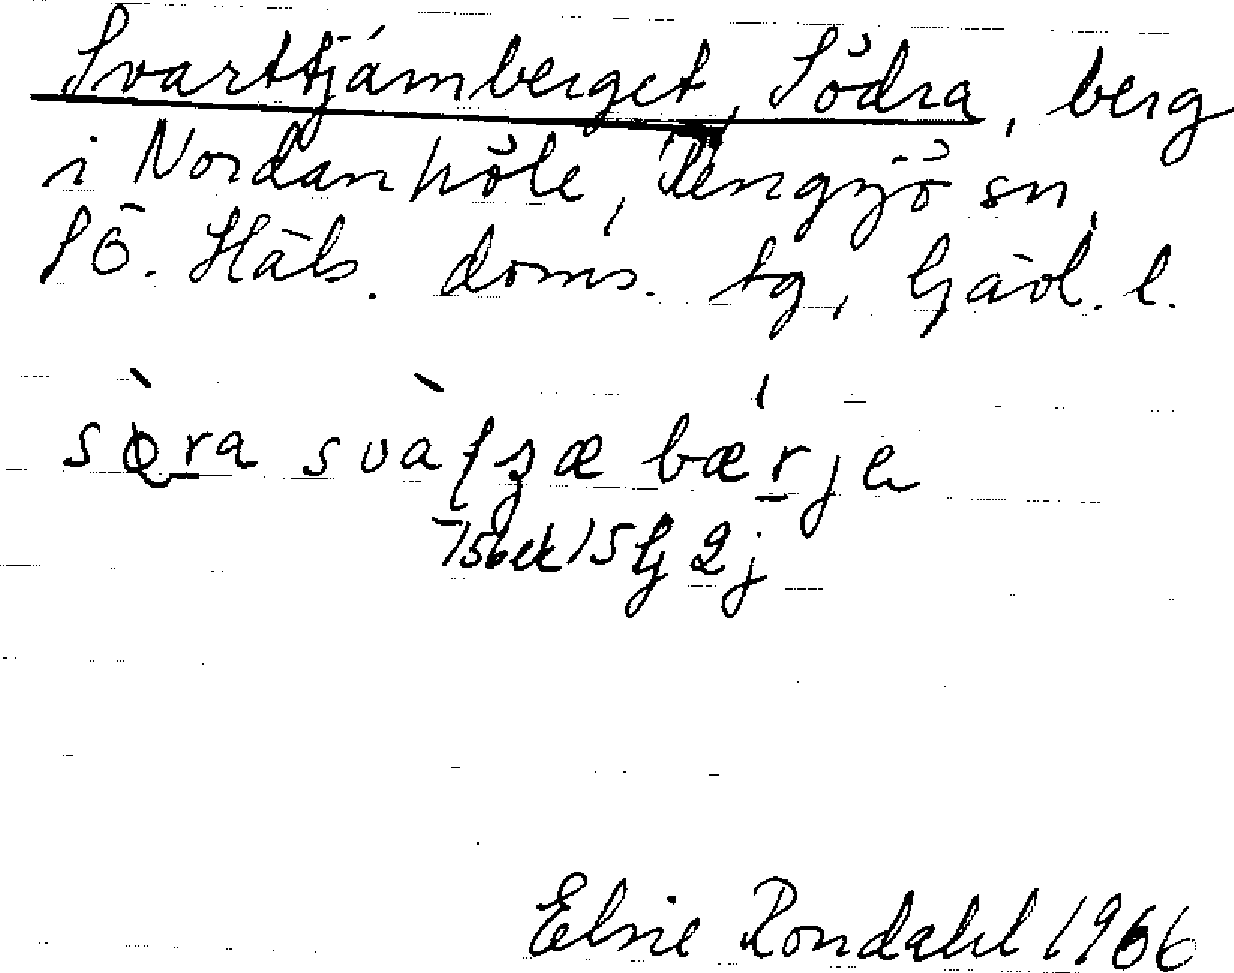 Svarttjärnberget, Södra, berg
i Nordanhöle, Rengsjö sn,
Sö. Häls. doms. tg, Gävl. l.
sɷ̀ra svàʈʂæ bǽrje
15 Gj 2 j
Elsie Rondahl 1966